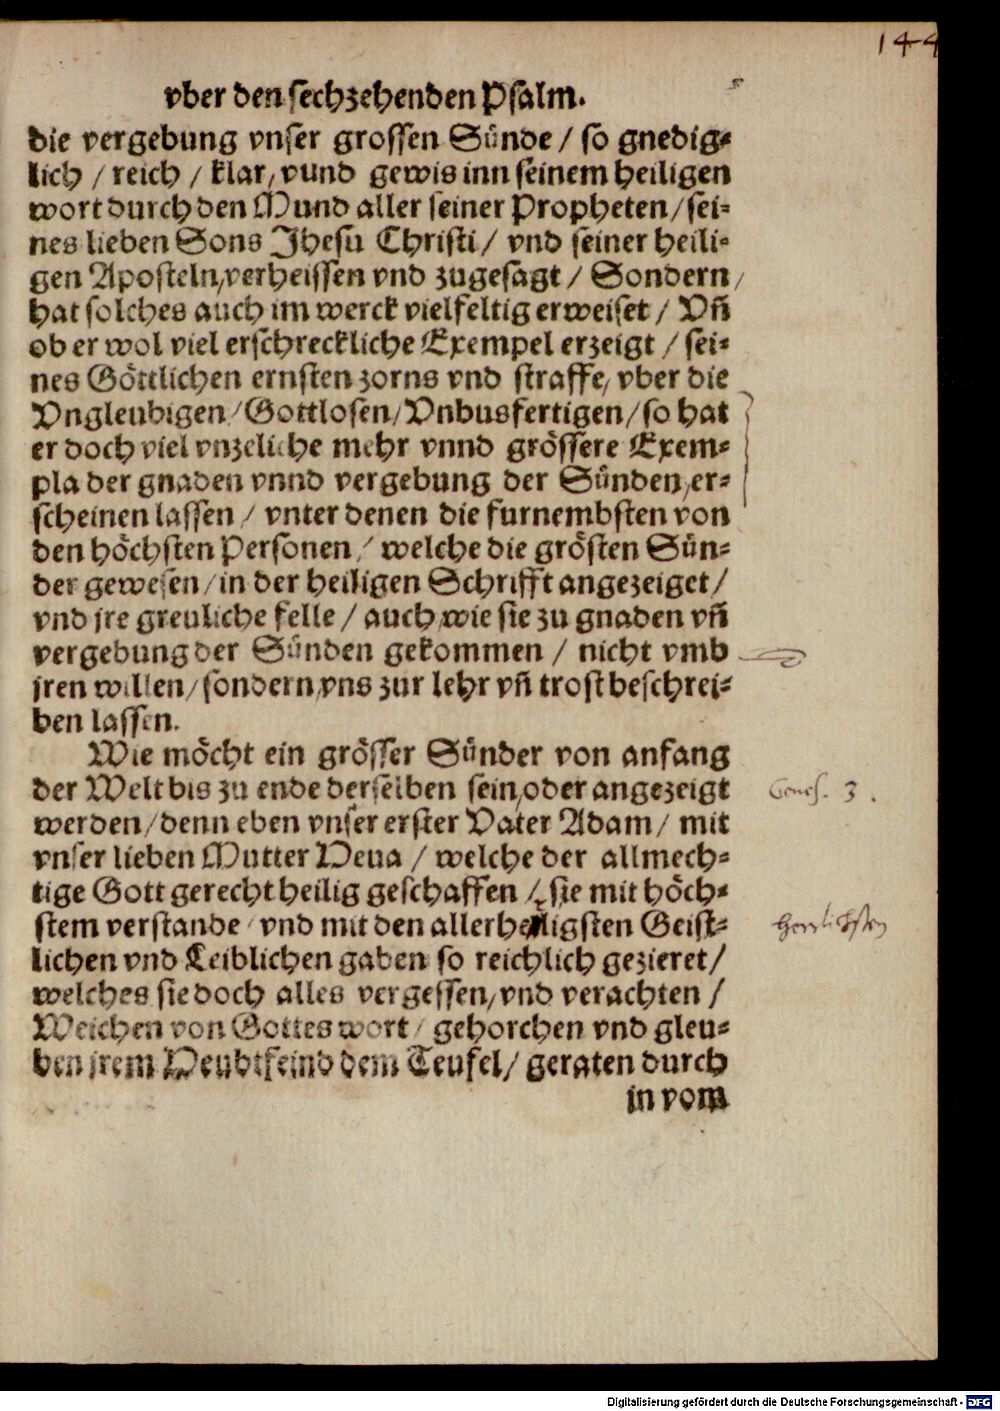 144
vber den sechzehenden Psalm.
die vergebung vnser grossen Sünde / so gnedig⸗
lich / reich / klar, vund gewis inn seinem heiligen
wort durch den Mund aller seiner Propheten / sei⸗
nes lieben Sons Jhesu Christi / vnd seiner heili⸗
gen Aposteln, verheissen vnd zugesagt / Sondern /
hat solches auch im werck vielfeltig erweiset / Vñ
ob er wol viel erschreckliche Exempel erzeigt / sei⸗
nes Göttlichen ernsten zorns vnd straffe, vber die
Vngleubigen / Gottlosen / Vnbusfertigen / so hat
er doch viel vnzeliche mehr vnnd grössere Exem⸗
pla der gnaden vnnd vergebung der Sünden, er⸗
scheinen lassen / vnter denen die furnembsten von
den höchsten Personen / welche die grösten Sün⸗
der gewesen / in der heiligen Schrifft angezeiget /
vnd jre greuliche felle / auch wie sie zu gnaden vñ
vergebung der Sünden gekommen / nicht vmb
jren willen / sondern, vns zur lehr vñ trost beschrei⸗
ben lassen.
Wie möcht ein grösser Sünder von anfang
der Welt bis zu ende derselben sein, oder angezeigt
Genes. 3.
werden / denn eben vnser erster Vater Adam / mit
vnser lieben Mutter Heua / welche der allmech⸗
tige Gott gerecht heilig geschaffen / sie mit höch⸗
stem verstande / vnd mit den allerheiligsten Geist⸗
herrlichsten
lichen vnd Leiblichen gaben so reichlich gezieret /
welches sie doch alles vergessen, vnd verachten /
Weichen von Gottes wort / gehorchen vnd gleu⸗
ben jrem Heubtfeind dem Teufel / geraten durch
in vom
Digitalisierung gefördert durch die Deutsche Forschungsgemeinschaft - DFG